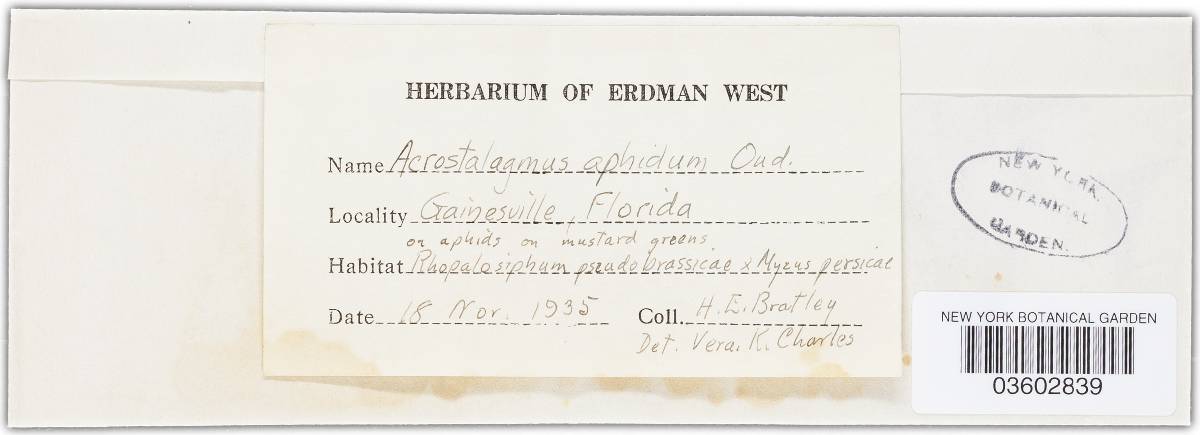 HERBARIUM OF ERDMAN WEST
Name Acrostalagmus aphidum Oud.
Locality Gainesville, Florida
on aphids on mustard greens
Habitat Rhopalosiphum pseudobrassicae & Myzus persicae
Date 18 Nov. 1935 Coll. H. E. Bratley
Det. Vera. K. Charles
NEW YORK
BOTANICAL
GARDEN.
NEW YORK BOTANICAL GARDEN
03602839